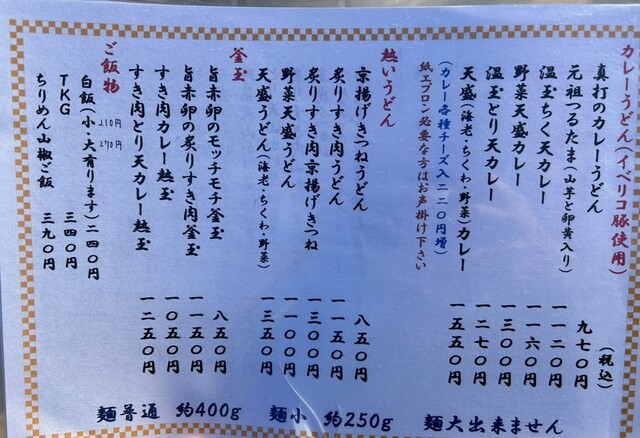 カレーうどん(イベリコ豚使用)
(税込)
真打のカレーうどん 九七〇円
元祖つるたま(山芋と卵黄入り) 一一二〇円
温玉ちく天カレー 一一六〇円
野菜天盛カレー 一三〇〇円
温玉とり天カレー 一二七〇円
天盛(海老・ちくわ・野菜)カレー 一五五〇円
(カレー各種チーズ入二二〇円増)
紙エプロン必要な方はお声掛け下さい
熱いうどん
京揚げきつねうどん 八五〇円
炙りすき肉うどん 一一五〇円
炙りすき肉京揚げきつね 一三〇〇円
野菜天盛うどん 一一〇〇円
天盛うどん(海老・ちくわ・野菜) 一三五〇円
釜玉
旨赤卵のモッチモチ釜玉 八五〇円
旨赤卵の炙りすき肉釜玉 一一五〇円
すき肉カレー熱玉 一〇五〇円
すき肉とり天カレー熱玉 一二五〇円
ご飯物
白飯(小・大有ります)二四〇円
210円 270円
TKG 三四〇円
ちりめん山椒ご飯 三九〇円
麺普通 約400g 麺小 約250g 麺大出来ません